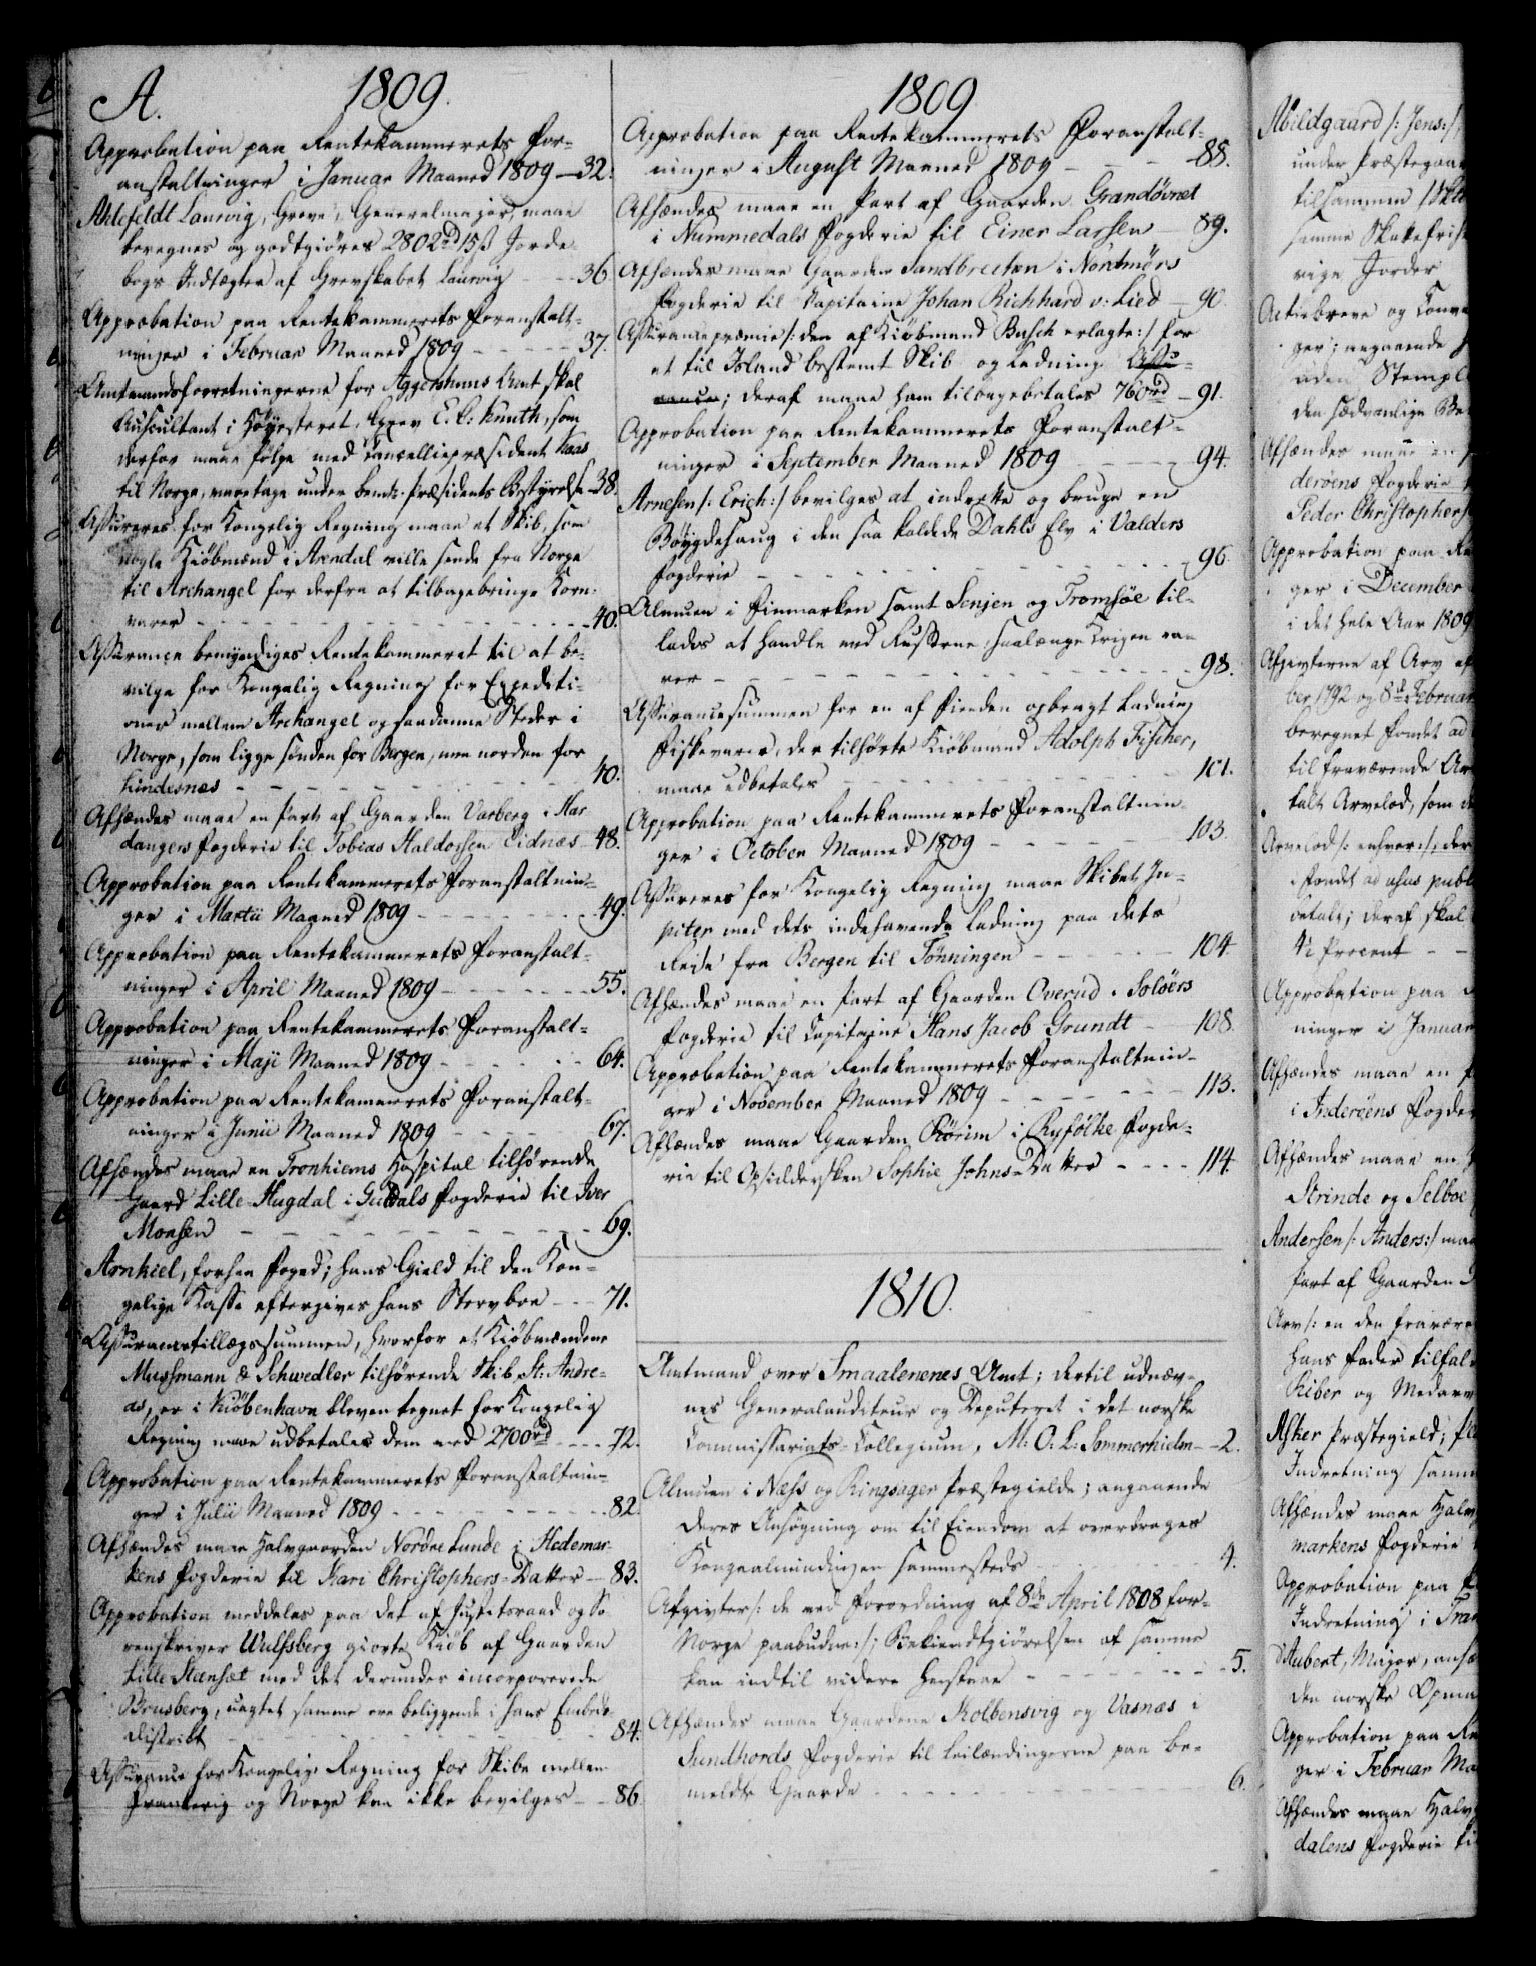 A. 1809.
Approbation paa Rentekammerets For-
anstaltninger i Januar Maaned 1809 — 32.
Ahlefeldt Laurvig, Greve, Generalmajor, maae
beregnes og godtgiøres 2802 rd 15 ß Jorde-
bogs Indtægter af Grevskabet Laurvig - - 36
Approbation paa Rentekammerets Foranstalt-
ninger i Februar Maaned 1809 - - - - - 37.
Amtmandsforretningerne for Aggershuus Amt skal
Auscultant i Høyesteret, Greve E. C: Knuth, som
derfor maae følge med Cancelliepræsident Kaas
til Norge, varetage under bemte Præsidents Bestyrelse - 38.
Assureres for Kongelig Regning maae et Skib, som
nogle Kiøbmænd i Arendal ville sende fra Norge
til Archangel for derfra at tilbagebringe Korn-
varer - - - - - - - - - 40.
Assurance bemyndiges Rentekammeret til at be-
vilge for Kongelig Regning for Expediti-
oner mellem Archangel og saadanne Steder i
Norge, som ligge sønden for Bergen, men norden for
Lindesnæs - - - - - - - - 40.
Afhændes maae en Part af Gaarden Varberg i Har-
dangers Fogderie til Tobias Haldorsen Eidnæs - 48.
Approbation paa Rentekammerets Foranstaltnin-
ger i Martii Maaned 1809 - - - - - - 49.
Approbation paa Rentekammerets Foranstalt-
ninger i April Maaned 1809 - - - - - 55.
Approbation paa Rentekammerets Foranstalt-
ninger i Maji Maaned 1809 - - - - - 64.
Approbation paa Rentekammerets Foranstalt-
ninger i Junii Maaned 1809 - - - - - 67.
Afhændes maae en Tronhiems Hospital tilhørende
Gaard Lille-Hugdal i Guldals Fogderie til Iver
Monsen - - - - - - - - - 69.
Arnkiel, forhen Foged; hans Gield til den Kon-
gelige Kasse eftergives hans Stervboe - - 71.
Assurancetillægssummen, hvorfor et Kiøbmændene
Mussmann & Schwedler tilhørende Skib, St: Andre-
as, er i Kiøbenhavn bleven tegnet for Kongelig
Regning maae udbetales dem med 2700 rd - - - 72.
Approbation paa Rentekammerets Foranstaltnin-
ger i Julii Maaned 1809 - - - - - - 82.
Afhændes maae Halvgaarden Nordre Lunde i Hedemar-
kens Fogderie til Kari Christophers-Datter - 83.
Approbation meddeles paa det af Justitsraad og So-
renskriver Wulfsberg giorte Kiøb af Gaarden
Lille Steensæt med det derunder incorporerede
Brusberg, uagtet samme ere beliggende i hans Embeds-
District - - - - - - - - - 84.
Assurance for Kongelig Regning for Skibe mellem
Frankerig og Norge kan ikke bevilges - - 86.
1809
Approbation paa Rentekammerets Foranstalt-
ninger i August Maaned 1809 - - - - 88.
Afhændes maae en Part af Gaarden Grandøvret
i Nummedals Fogderie til Einer Larsen - 89.
Afhændes maae Gaarden Sandbreeten i Nordmørs
Fogderie til Capitaine Johan Richhard v: Lied - 90.
Assurancepræmie /: den af Kiøbmand Busch erlagte :/ for
et til Island bestemt Skib og Ladning Assu-
rance; deraf maae ham tilbagebetales 760 rd - 91.
Approbation paa Rentekammerets Foranstalt-
ninger i September Maaned 1809 - - - 94.
Arnesen /: Erich :/ bevilges at indrette og bruge en
Bøygdesaug i den saa kaldede Dahls Elv i Valders
Fogderie - - - - - - - - - 96.
Almuen i Finmarken samt Senjen og Tromsøe til-
lades at handle med Russerne saalænge Krigen va-
rer - - - - - - - - - - 98.
Assurancesummen for en af Fienden opbragt Ladning
Fiskevarer, der tilhørte Kiøbmand Adolph Fischer,
maae udbetales - - - - - - - 101.
Approbation paa Rentekammerets Foranstaltnin-
ger i October Maaned 1809 - - - - - 103.
Assureres for Kongelig Regning maae Skibet Ju-
piter med dets indehavende Ladning paa dets
Reise fra Bergen til Tønningen - - - - - 104.
Afhændes maae en Part af Gaarden Overud i Soløers
Fogderie til Capitaine Hans Jacob Grundt - 108.
Approbation paa Rentekammerets Foranstaltnin-
ger i November Maaned 1809 - - - - - 113.
Afhændes maae Gaarden Rørim i Ryfølke Fogde-
rie til Opsiddersken Sophie Johns-Datter - - - 114.
1810.
Amtmand over Smaalenenes Amt; dertil udnæv-
nes Generalauditeur og Deputeret i det norske
Commissariats-Collegium, M: O: L: Sommerhielm - - 2.
Almuen i Næss og Ringsager Præstegielde; angaaende
deres Ansøgning om til Eiendom at overdrages
Kongealmindingen sammesteds - - - - - 4.
Afgivter /: de ved Forordning af 8de April 1808 for
Norge paabudne :/; Bekiendtgiørelsen af samme
kan indtil videre henstaae - - - - - - 5.
Afhændes maae Gaardene Kolbensvig og Vasnæs i
Sundhords Fogderie til Leilændingerne paa be-
meldte Gaarde - - - - - - - 6.
Abildgaard /: Jens :/
under Præstegaar
tilsammen
samme Skattefrihe
rige Jorder
Actiebreve og Conve
ger; angaaende
uden Stempl
den sædvanlige Be
Afhændes maae en
derøens Fogderie
Peder Christophers
Approbation paa Re
ger i December
i det hele Aar 1809
Afgivterne af Arv af
ber 1792 og 8de Februar
beregnet Fondet ad
til fraværende Ar
faldt Arvelod, som
Arvelod /: enhver :/; der
Fondet ad usus publ
betalt; deraf skal
4½ Procent - -
Approbation paa
ninger i Januar
Afhændes maae en
i Inderøens Fogder
Afhændes maae en
Strinde og Selboe
Andersen /: Anders :/ maa
Part af Gaarden
Arv /: en den fravære
hans Fader tilfal
Riber og Medarv
Asker Præstegield;
Indretning samm
Afhændes maae Halv
markens Fogderie
Approbation paa
Indretning i Tran
d'Aubert, Major, ansæ
den norske Opma
Approbation paa Re
ger i Februar Ma
Afhændes maae Halv
dalens Fogderie ti